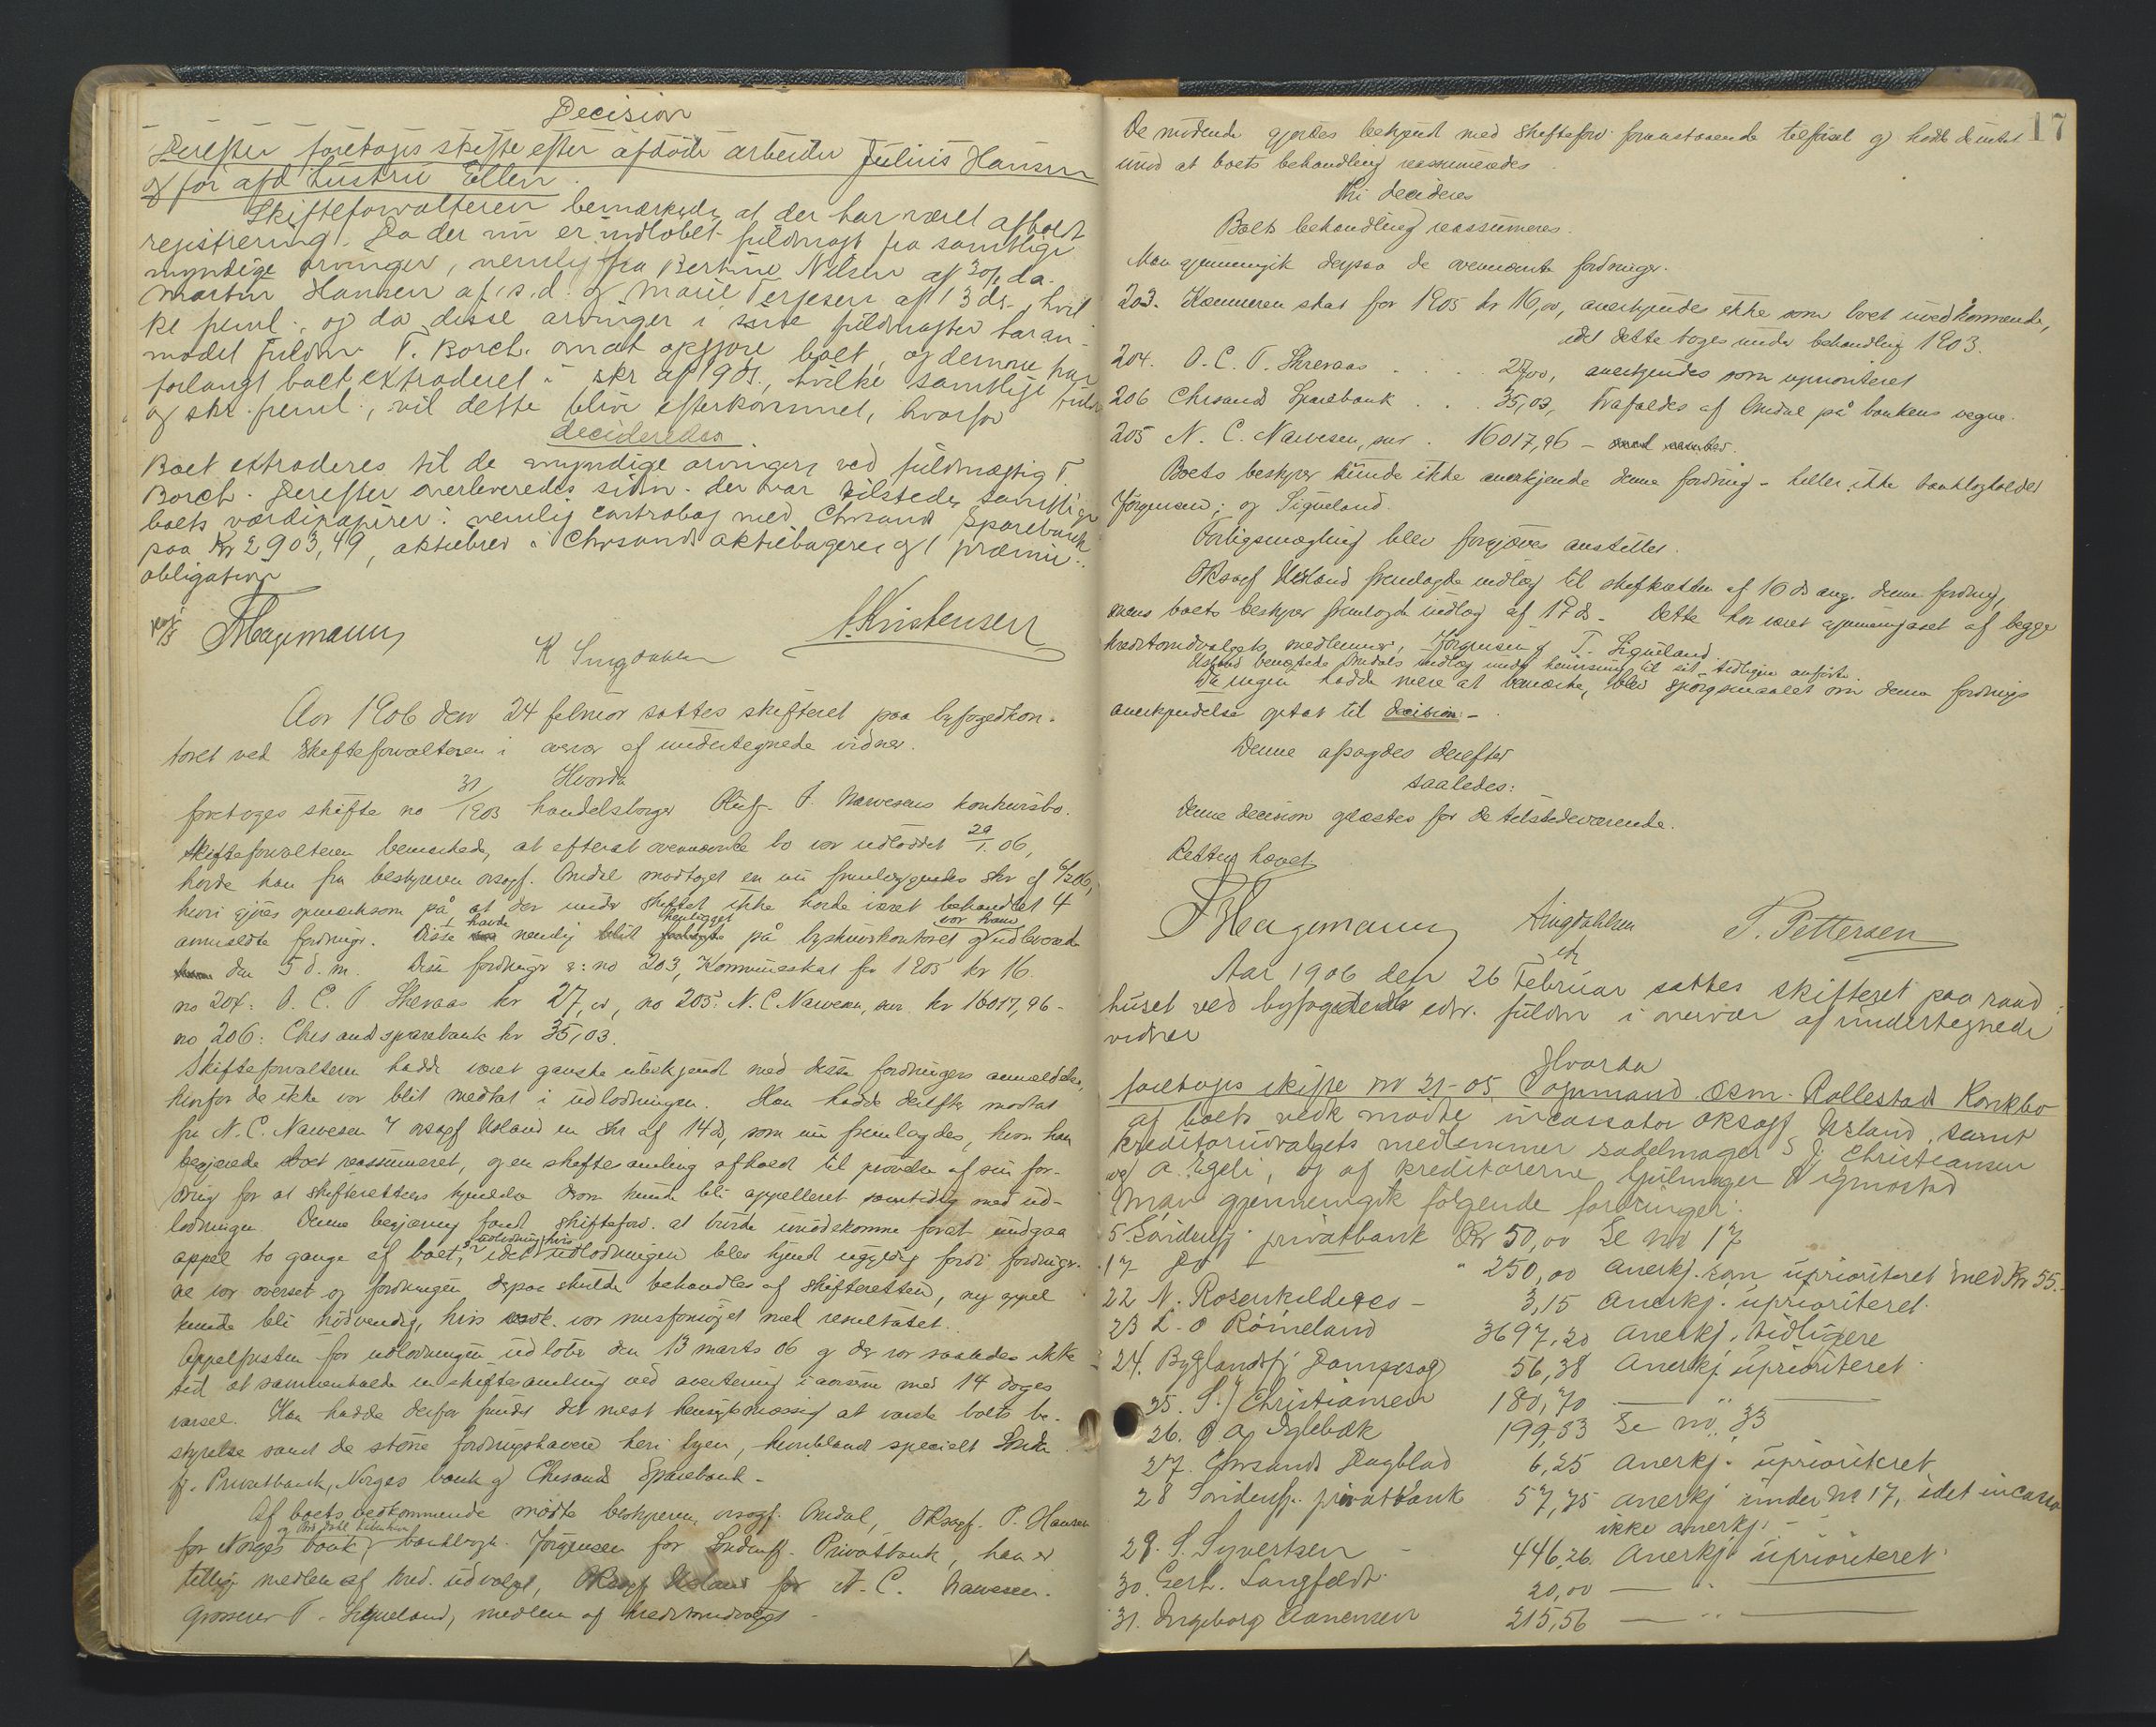 Decision
Derefter foretoges skifte efter afdöde arbeider Julius Hansen
og för afd hustru Ellen.
Skifteforvalteren bemærkede, at der har været afholdt
registrering. Da der nu er indlöbet fuldmagt fra samtlige
myndige arvinger, nemlig fra Bertine Nilsen af 30/1 da.
Martin Hansen af s.d. og Marie Terjesen af 13 ds, hvil
ke freml., og da disse arvinger i sine fuldmagter har an-
modet fuldm. T. Borch. om at opgjöre boet, og denne har
forlangt boet extraderet i skr af 1905, hvilke samtlige fuldm
og skr. freml., vil dette blive efterkommet, hvorfor
decideredes
Boet extraderes til de myndige arvinger ved fuldmægtig T.
Borch. Derefter overleveredes sidn. der var tilstede, samtlige
boets værdipapirer: nemlig contrabog med Chrsands Sparebank
paa Kr 2903,49, aktiebrev i Chrsands aktiebageri og 1 præmie-
obligation
FHagemann
K Lingdahlsen
A. Kristensen
Aar 1906 den 24 februar sattes skifteret paa byfogedkon-
toret ved Skifteforvalteren i overvær af undertegnede vidner.
Hvorda
foretoges skifte no 31/1903 handelsborger Oluf T. Narvesens konkursbo.
Skifteforvalteren bemærkede, at efterat ovennævnte bo var udloddet 29/1.06,
havde han fra bestyreren orsagf. Omdal modtaget en nu fremlæggendes skr af 6/2 06,
hvori gjöres opmærksom på, at der under skiftet ikke havde været behandlet 4
anmeldte fordringer. Disse havde nemlig henligget på byskriverkontoret og udleveredes var ham
den 5 d.m. Disse fordringer er: no 203, Kommuneskat for 1905 kr 16.
no 204: O. C. T Skeraas kr 27,00, no 205: N. C. Narvesen, sen kr 16017,96-
no 206: Chrisands sparebank kr 35,03.
Skifteforvalteren hadde været ganske ubekjendt med disse fordringers anmeldelse,
hvorfor de ikke var blit medtat i udlodningen. Han hadde derefter modtat
fra N. C. Narvesen v/ orsagf Usland en skr af 14 ds, som nu fremlagdes, hvori han
begjærede boet reassumeret, og en skiftesamling afholdt til prövelse af sin for-
dring for at skifterettens kjendelse derom kunde bli appelleret samtidig med ud-
lodningen. Denne begjæring fandt skifteforv. at burde imödekomme forat undgaa
appel to gange af boet, idet hvis udlodningen blev kjendt ugyldig fordi fordringer-
ne var overset og fordringen derpaa skulde behandles af skifteretten, ny appel
kunde bli nödvendig, hvis vedk. var misfornöiet med resultatet.
Appelfristen for udlodningen udlöber den 13 marts 06 og der var saaledes ikke
tid at sammenkalde en skiftesamling ved avertering i avisene med 14 dages
varsel. Han hadde derfor fundet det mest hensigtsmæssig at varsle boets be-
styrelse samt de större fordringshavere her i byen, hvoriblandt specielt Sönden
fj. Privatbank, Norges bank og Chrsands Sparebank.-
Af boets vedkommende mödte bestyreren, orsagf. Omdal, OKsagf. P. Hansen
for Norges bank, bankbogh. Jörgensen for Söndenfj. Privatbank, han er
tillige medlem af kred. udvalget, OKsagf Usland for N. C. Narvesen.
Grosserer T. Sigveland, medlem af kreditorudvalget.-
17
De mödende gjordes bekjendt med skifteforv. foranstaaende tilförsel og hadde de intet
imod at boets behandling reassumeredes.
Thi decideres
Boets behandling reassumeres.
Man gjennemgik derpaa de ovennævnte fordringer.
203. Kæmneren skat for 1905 kr 16,00, anerkjendes ikke som boet uvedkommende,
idet dette toges under behandling 1903.
204. O. C. T. Skreraas . . . 27,00, anerkjendes som uprioriteret
206 Chrsands Sparebank . . . 35,03, frafaldes af Omdal på bankens vegne.
205 N. C. Narvesen, sen . 16017,96 -
Boets bestyrer kunde ikke anerkjende denne fordring - heller ikke bankbogholder
Jörgensen, og Sigveland.
Forligsmægling blev forgjæves anstillet.
OKsagf Usland fremlagde indlæg til skifteretten af 16 ds ang. denne fordring,
mens boets bestyrer fremlagde indlæg af 17 ds. Dette har været gjennemgaaet af begge
kreditorudvalgets medlemmer, Jörgensen og T. Sigveland.
Usland benægtede Omdals indlæg under henvisning til sit tidligere anförte.
Da ingen hadde mere at bemærke, blev spörgsmaalet om denne fordrings
anerkjendelse optat til decision.-
Denne afsagdes derefter
saaledes:
Denne decision oplæstes for de tilstedeværende.
Retten hævet
FHagemann
Lingdahlsen
T. Pettersen
Aar 1906 den 26 Februar sattes skifteret paa raad-
huset ved byfogedens edsv. fuldm i overvær af undertegnede
vidner
Hvorda
foretoges skifte no 21-05 Kopmand Osm. Rollestads Konkbo
af boets vedk mödte incassator OKsagf Usland, samt
kreditorudvalgets medlemmer sadelmager S. J. Christiansen
og A. Egeli, og af kreditorerne hjulmager Vigmostad
Man gjennemgik fölgende fordringer:
5. Söndenfj. privatbank Kr 50,00 Se no 17
17 Do - " 250,00 anerkj. som uprioriteret med Kr 55.-
22 N. Rosenkilde & co - 3,15 anerkj. uprioriteret.
23 L. O Römeland 3697,20 anerkj. tidligere
24. Byglandsfj Dampsag 56,38 anerkj uprioriteret.
25. S. J Christiansen 180,70 — " —
26. O. A. Iglebæk 199,83 Se no. 33
27. Chrsands Dagblad 6,25 anerkj. uprioriteret
28 Söndenfj. privatbank 57,75 anerkj under No 17, idet incasso
ikke anerkj. -
29. S. Syvertsen - 446,26. Anerkj uprioriteret.
30. Gerh. Langfeldt 20,00 — " —
31. Ingeborg Aanensen 215,56 — " —